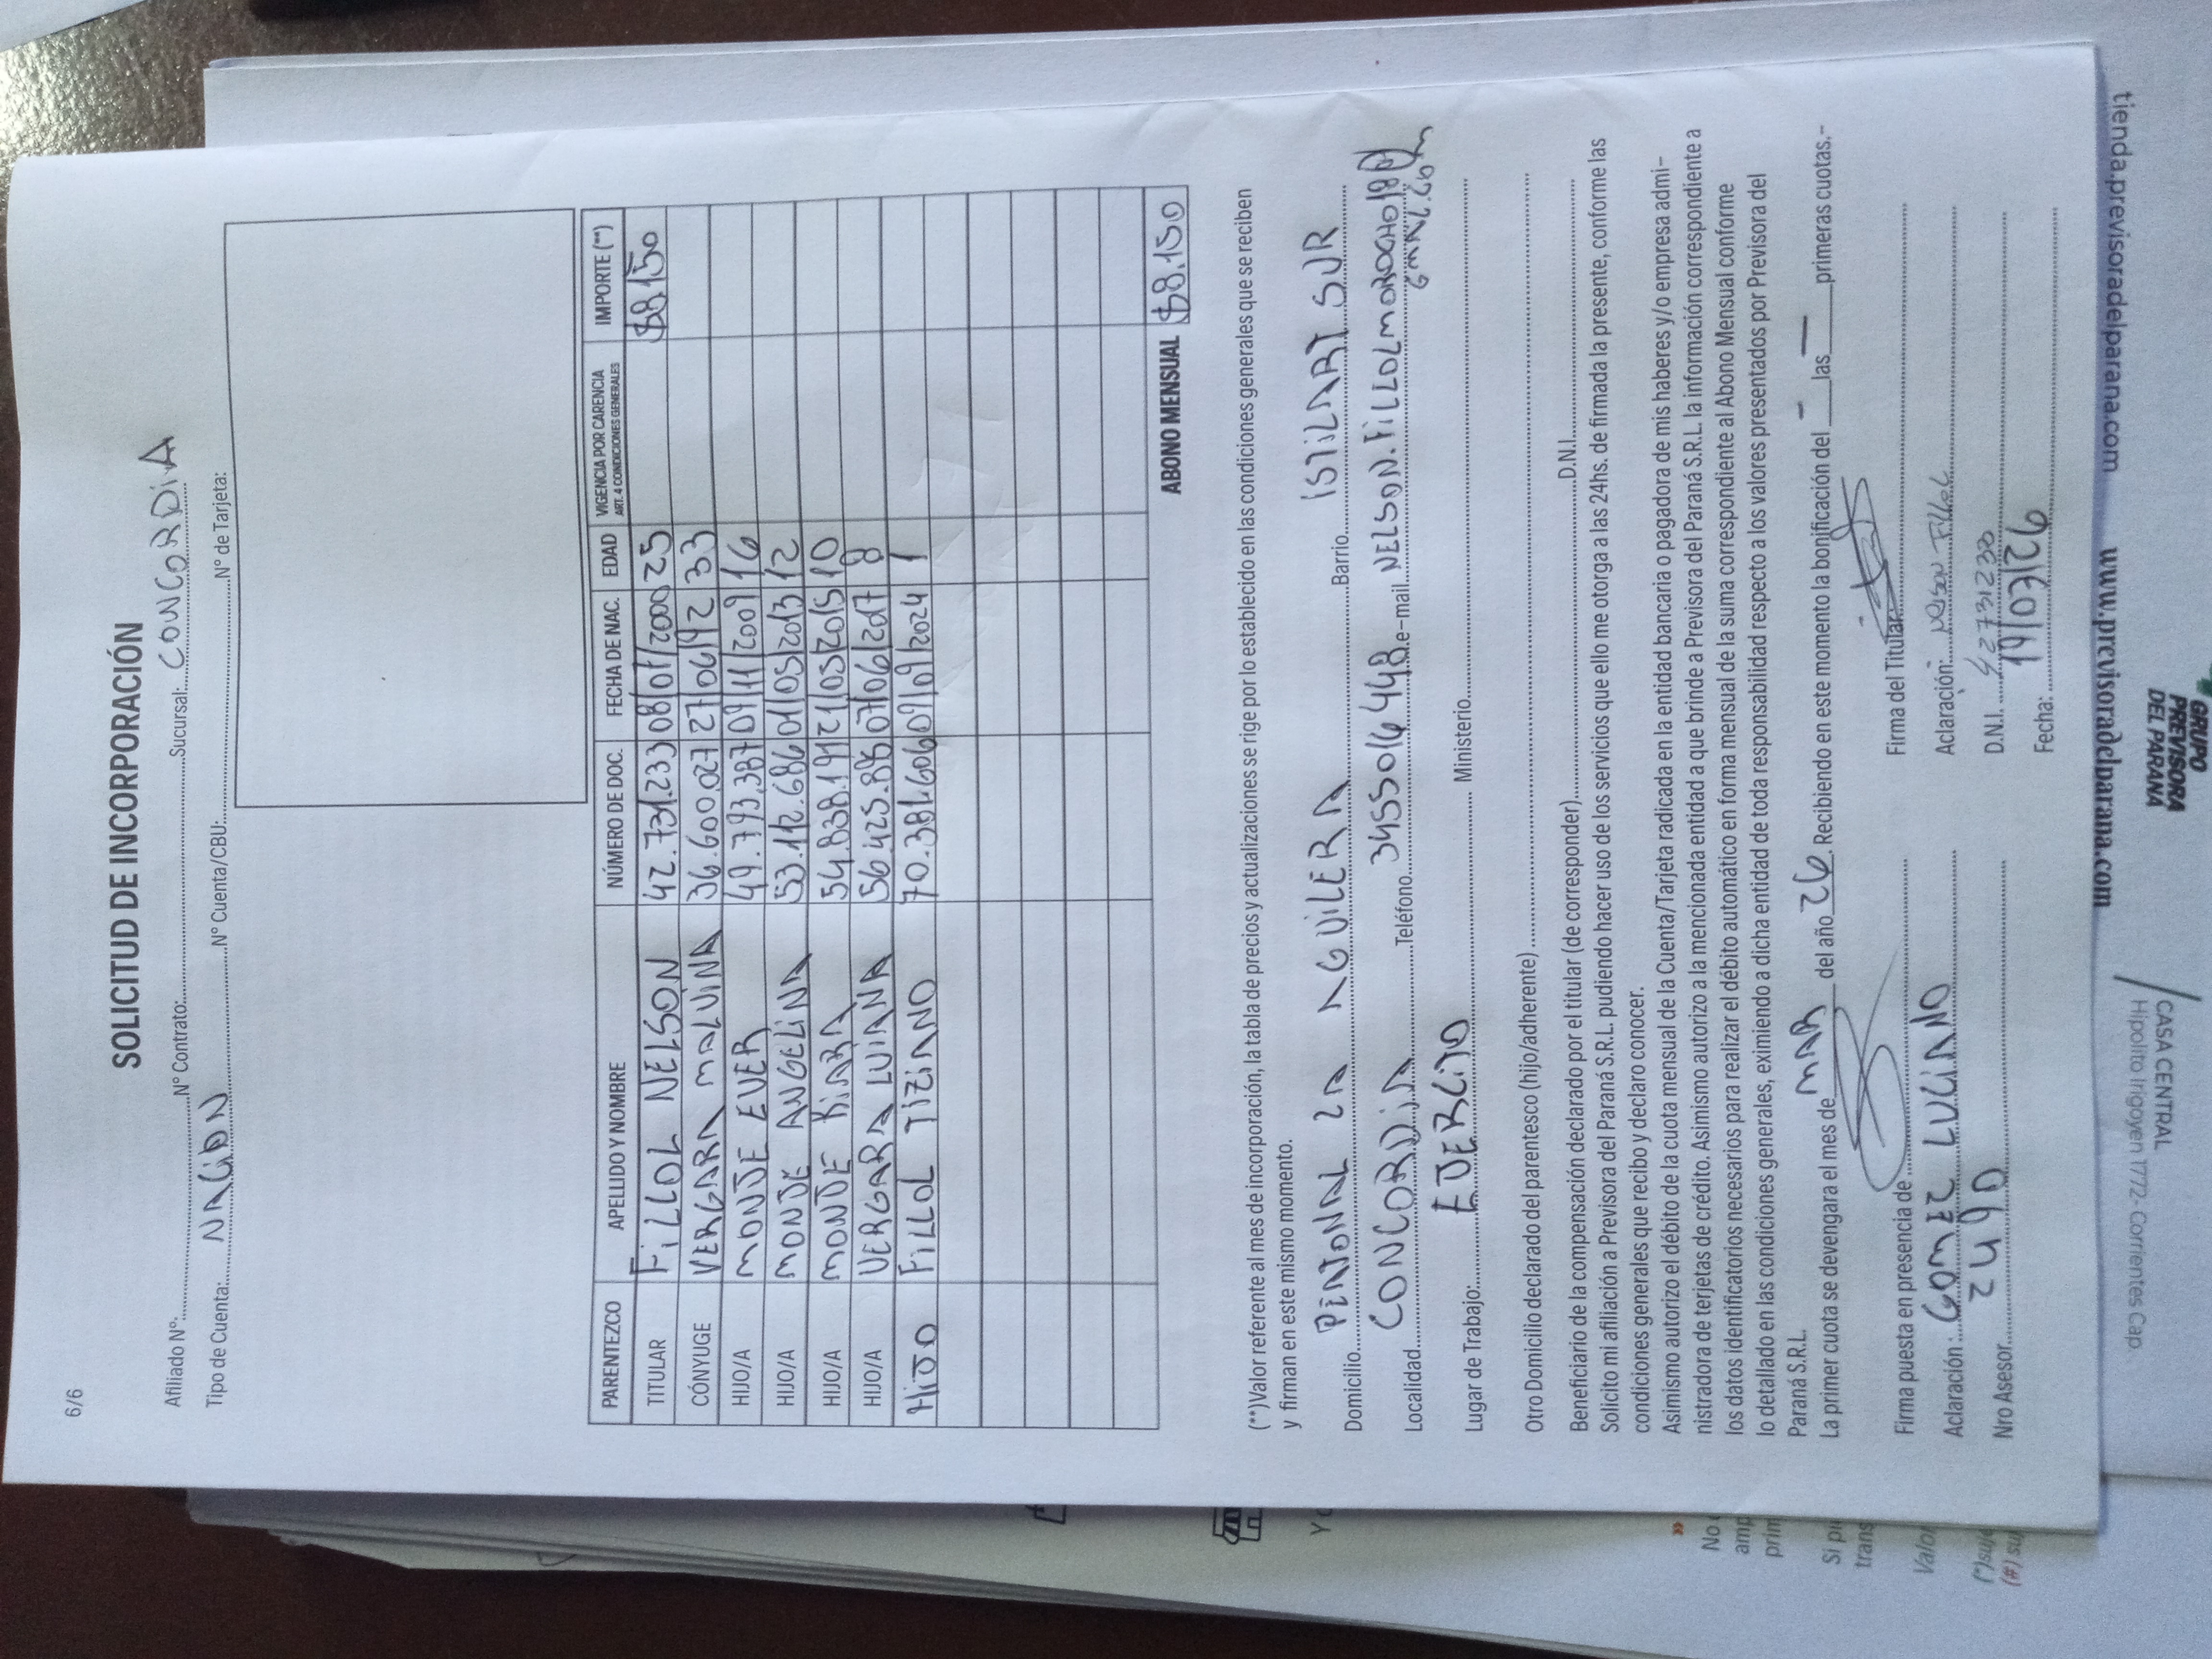 6/6
SOLICITUD DE INCORPORACIÓN
Afiliado N°: N° Contrato: Sucursal: CONCORDIA
Tipo de Cuenta: NACION N° Cuenta/CBU: N° de Tarjeta:
PARENTEZCO APELLIDO Y NOMBRE NÚMERO DE DOC. FECHA DE NAC. EDAD VIGENCIA POR CARENCIA ART. 4 CONDICIONES GENERALES IMPORTE (**)
TITULAR FILLOL NELSON 42.731.233 08/01/2000 25 $8.150
CÓNYUGE VERGARA MALVINA 36.600.027 27/06/92 33
HIJO/A MONJE EVER 49.793.387 09/11/2009 16
HIJO/A MONJE ANGELINA 53.112.686 01/05/2013 12
HIJO/A MONJE KIARA 54.838.191 21/05/2015 10
HIJO/A VERGARA LUIANA 56.425.885 07/06/2017 8
HIJO FILLOL TIZIANO 70.381.606 09/09/2024 1
ABONO MENSUAL $8.150
(**)Valor referente al mes de incorporación, la tabla de precios y actualizaciones se rige por lo establecido en las condiciones generales que se reciben
y firman en este mismo momento.
Domicilio LA AGUILERA Barrio ISTILART SUR
Localidad CONCORDIA Teléfono 3455016448 e-mail NELSON.FILLOLMOROCHO18@
GMAIL.COM
Lugar de Trabajo: EJERCITO Ministerio
Otro Domicilio declarado del parentesco (hijo/adherente)
Beneficiario de la compensación declarado por el titular (de corresponder) D.N.I.
Solicito mi afiliación a Previsora del Paraná S.R.L. pudiendo hacer uso de los servicios que ello me otorga a las 24hs. de firmada la presente, conforme las
condiciones generales que recibo y declaro conocer.
Asimismo autorizo el débito de la cuota mensual de la Cuenta/Tarjeta radicada en la entidad bancaria o pagadora de mis haberes y/o empresa admi-
nistradora de terjetas de crédito. Asimismo autorizo a la mencionada entidad a que brinde a Previsora del Paraná S.R.L. la información correspondiente a
los datos identificatorios necesarios para realizar el débito automático en forma mensual de la suma correspondiente al Abono Mensual conforme
lo detallado en las condiciones generales, eximiendo a dicha entidad de toda responsabilidad respecto a los valores presentados por Previsora del
Paraná S.R.L.
La primer cuota se devengara el mes de MAR del año 26. Recibiendo en este momento la bonificación del - las - primeras cuotas.-
Firma puesta en presencia de Firma del Titular
Aclaración: GOMEZ LUCIANO Aclaración: Nelson Fillol
Nro Asesor 2490 D.N.I. 42731230
Fecha: 19/03/26
www.previsoradelparana.com tienda.previsoradelparana.com
CASA CENTRAL
Hipolito Irigoyen 1772- Corrientes Cap.
GRUPO
PREVISORA
DEL PARANÁ